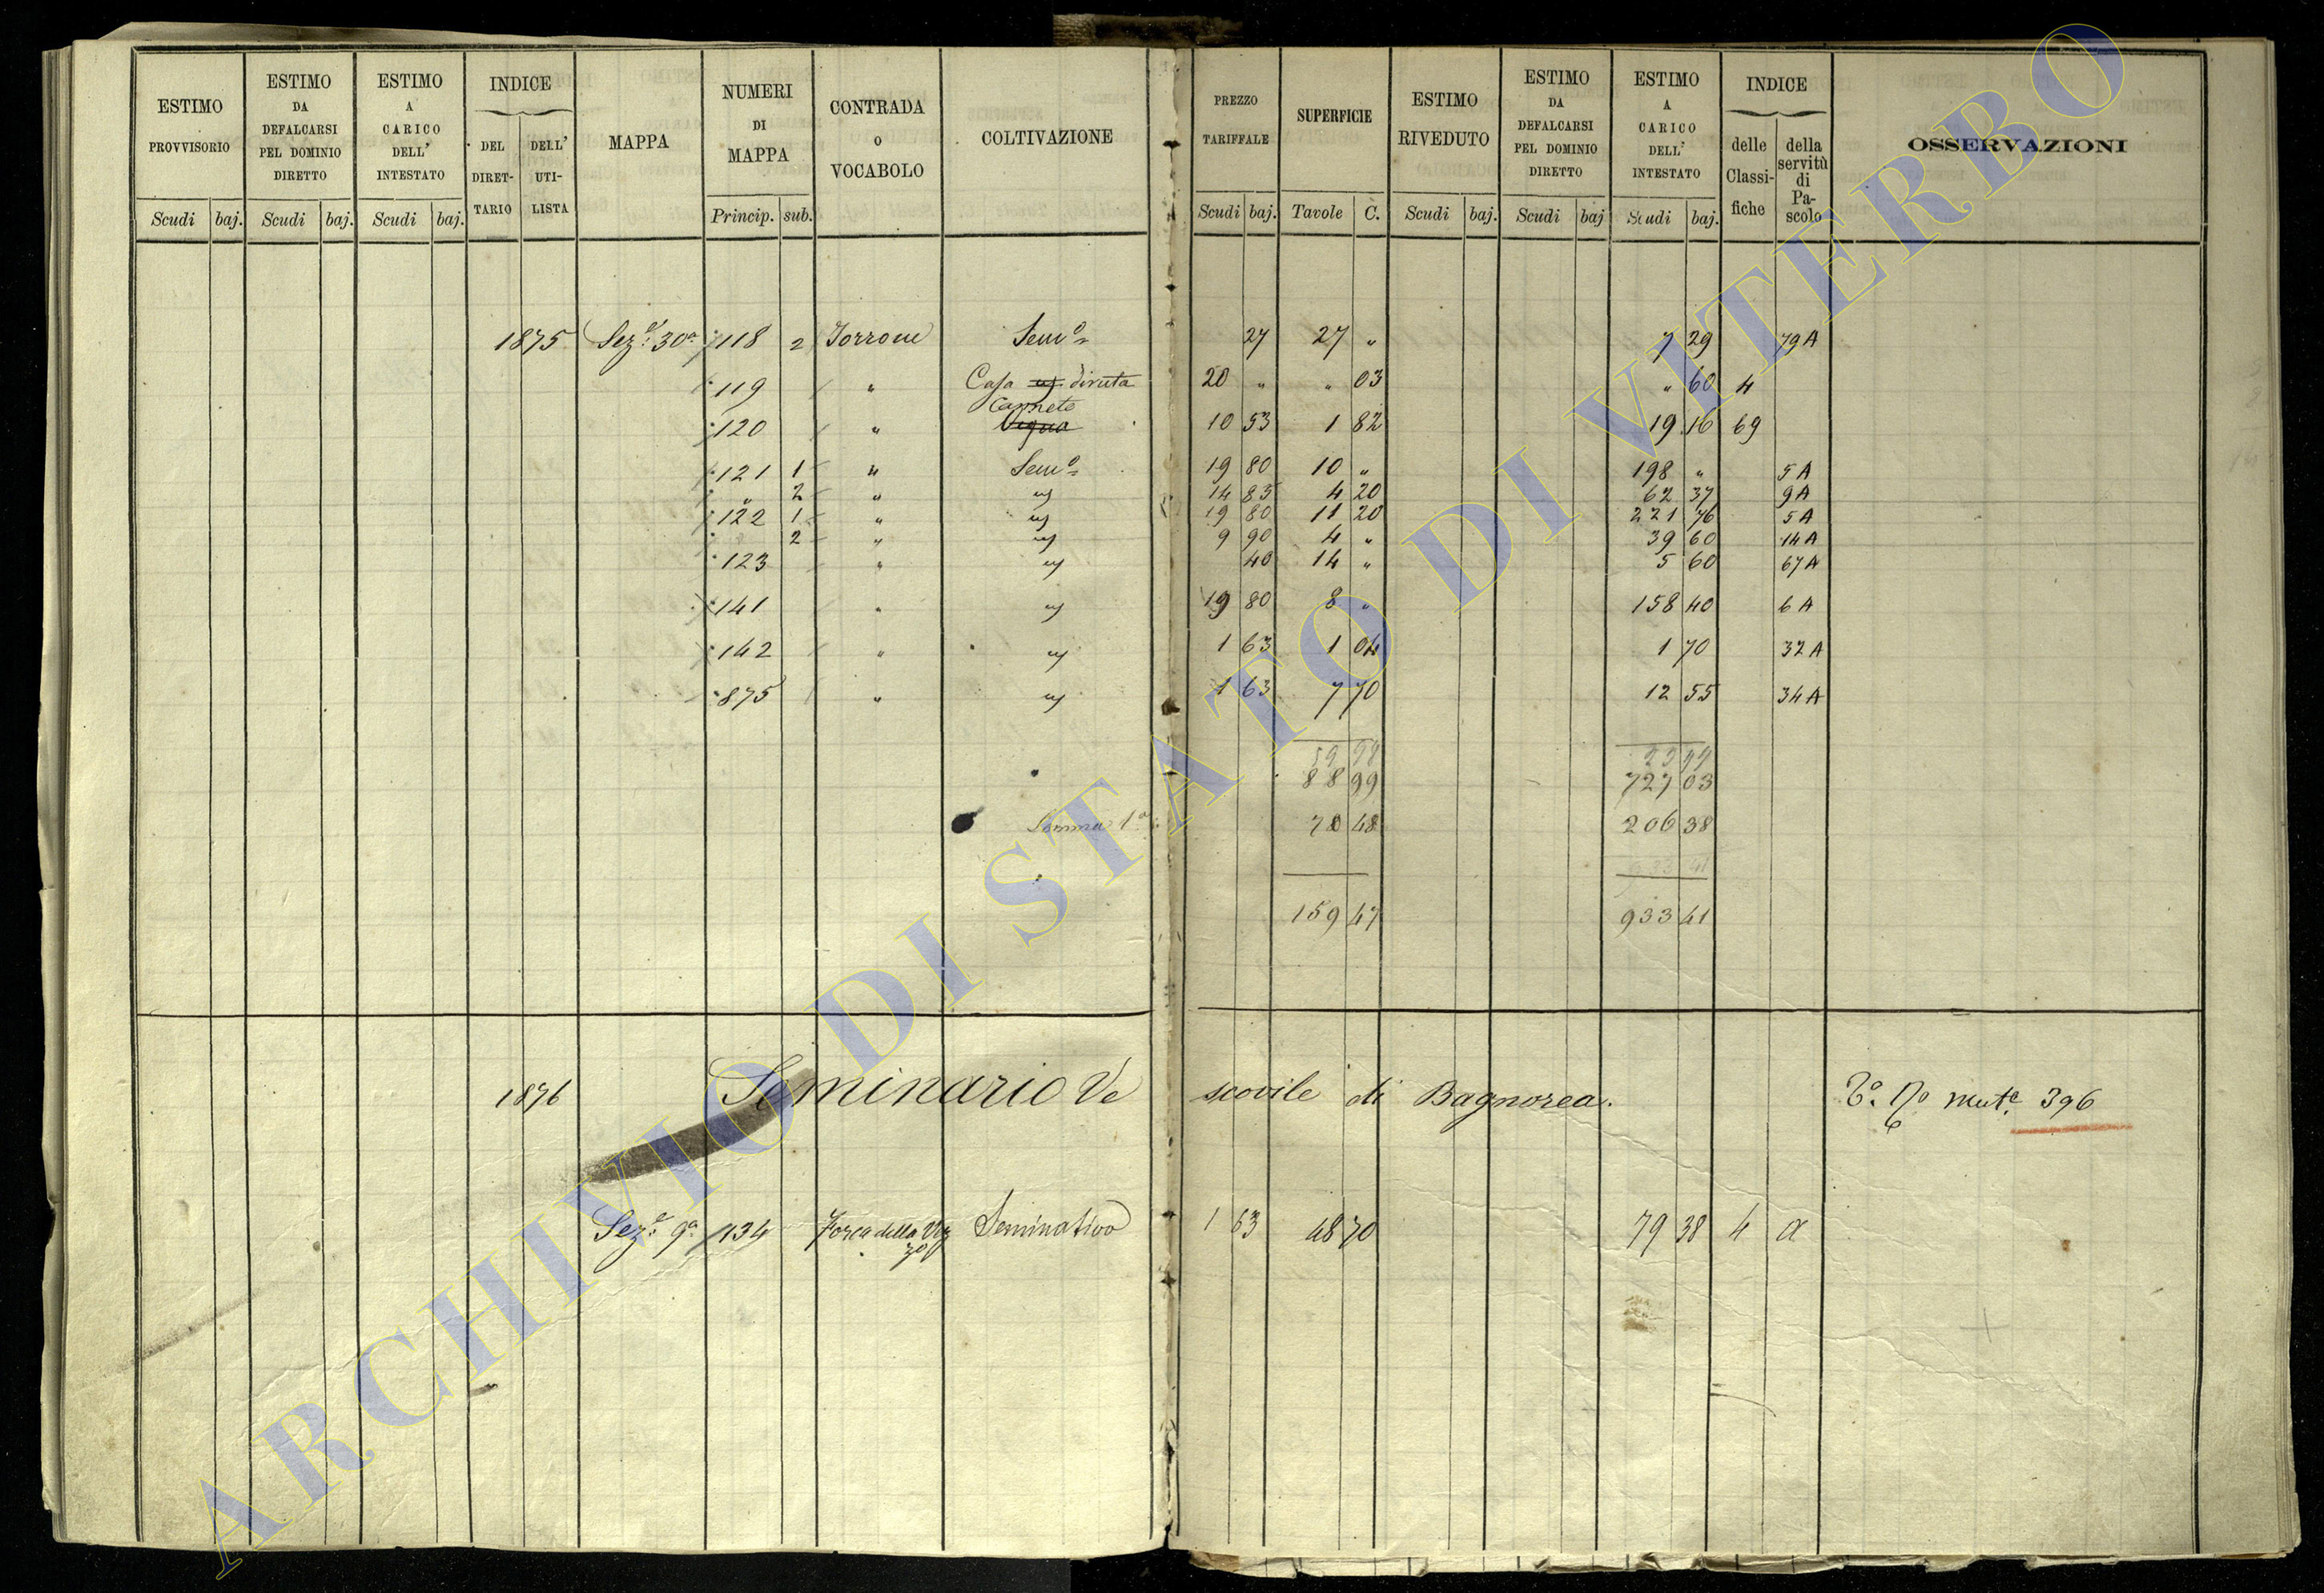 ESTIMO PROVVISORIO
Scudi baj.
ESTIMO DA DEFALCARSI PEL DOMINIO DIRETTO
Scudi baj.
ESTIMO A CARICO DELL' INTESTATO
Scudi baj.
INDICE
DEL DIRET-TARIO
DELL' UTI-LISTA
MAPPA
NUMERI DI MAPPA
Princip. sub.
CONTRADA o VOCABOLO
COLTIVAZIONE
PREZZO TARIFFALE
Scudi baj.
SUPERFICIE
Tavole C.
ESTIMO RIVEDUTO
Scudi baj.
ESTIMO DA DEFALCARSI PEL DOMINIO DIRETTO
Scudi baj
ESTIMO A CARICO DELL' INTESTATO
Scudi baj.
INDICE
delle Classi-fiche
della servitù di Pa-scolo
OSSERVAZIONI
1875 Seze. 30a 118 2 Torrone Semo 27 27 " 7 29 79A
119 " Casa diruta 20 " " 03 " 60 4
Cannete
120 " Vigna 10 53 1 82 19 16 69
121 1 " Semo 19 80 10 " 198 " 5A
" 2 " 14 85 4 20 62 37 9A
122 1 " 19 80 11 20 221 76 5A
2 " 9 90 4 " 39 60 14A
123 " 40 14 " 5 60 67A
141 " 19 80 8 " 158 40 6A
142 " 1 63 1 04 1 70 32A
875 " 1 63 7 70 12 55 34A
88 99 727 03
Somma 1a 70 48 206 38
159 47 933 41
1876 Seminario Vescovile di Bagnorea. muta. 396
Seze. 9a 134 Forca della Vez Seminativo 1 63 48 70 79 38 4 a
zo
ARCHIVIO DI STATO DI VITERBO